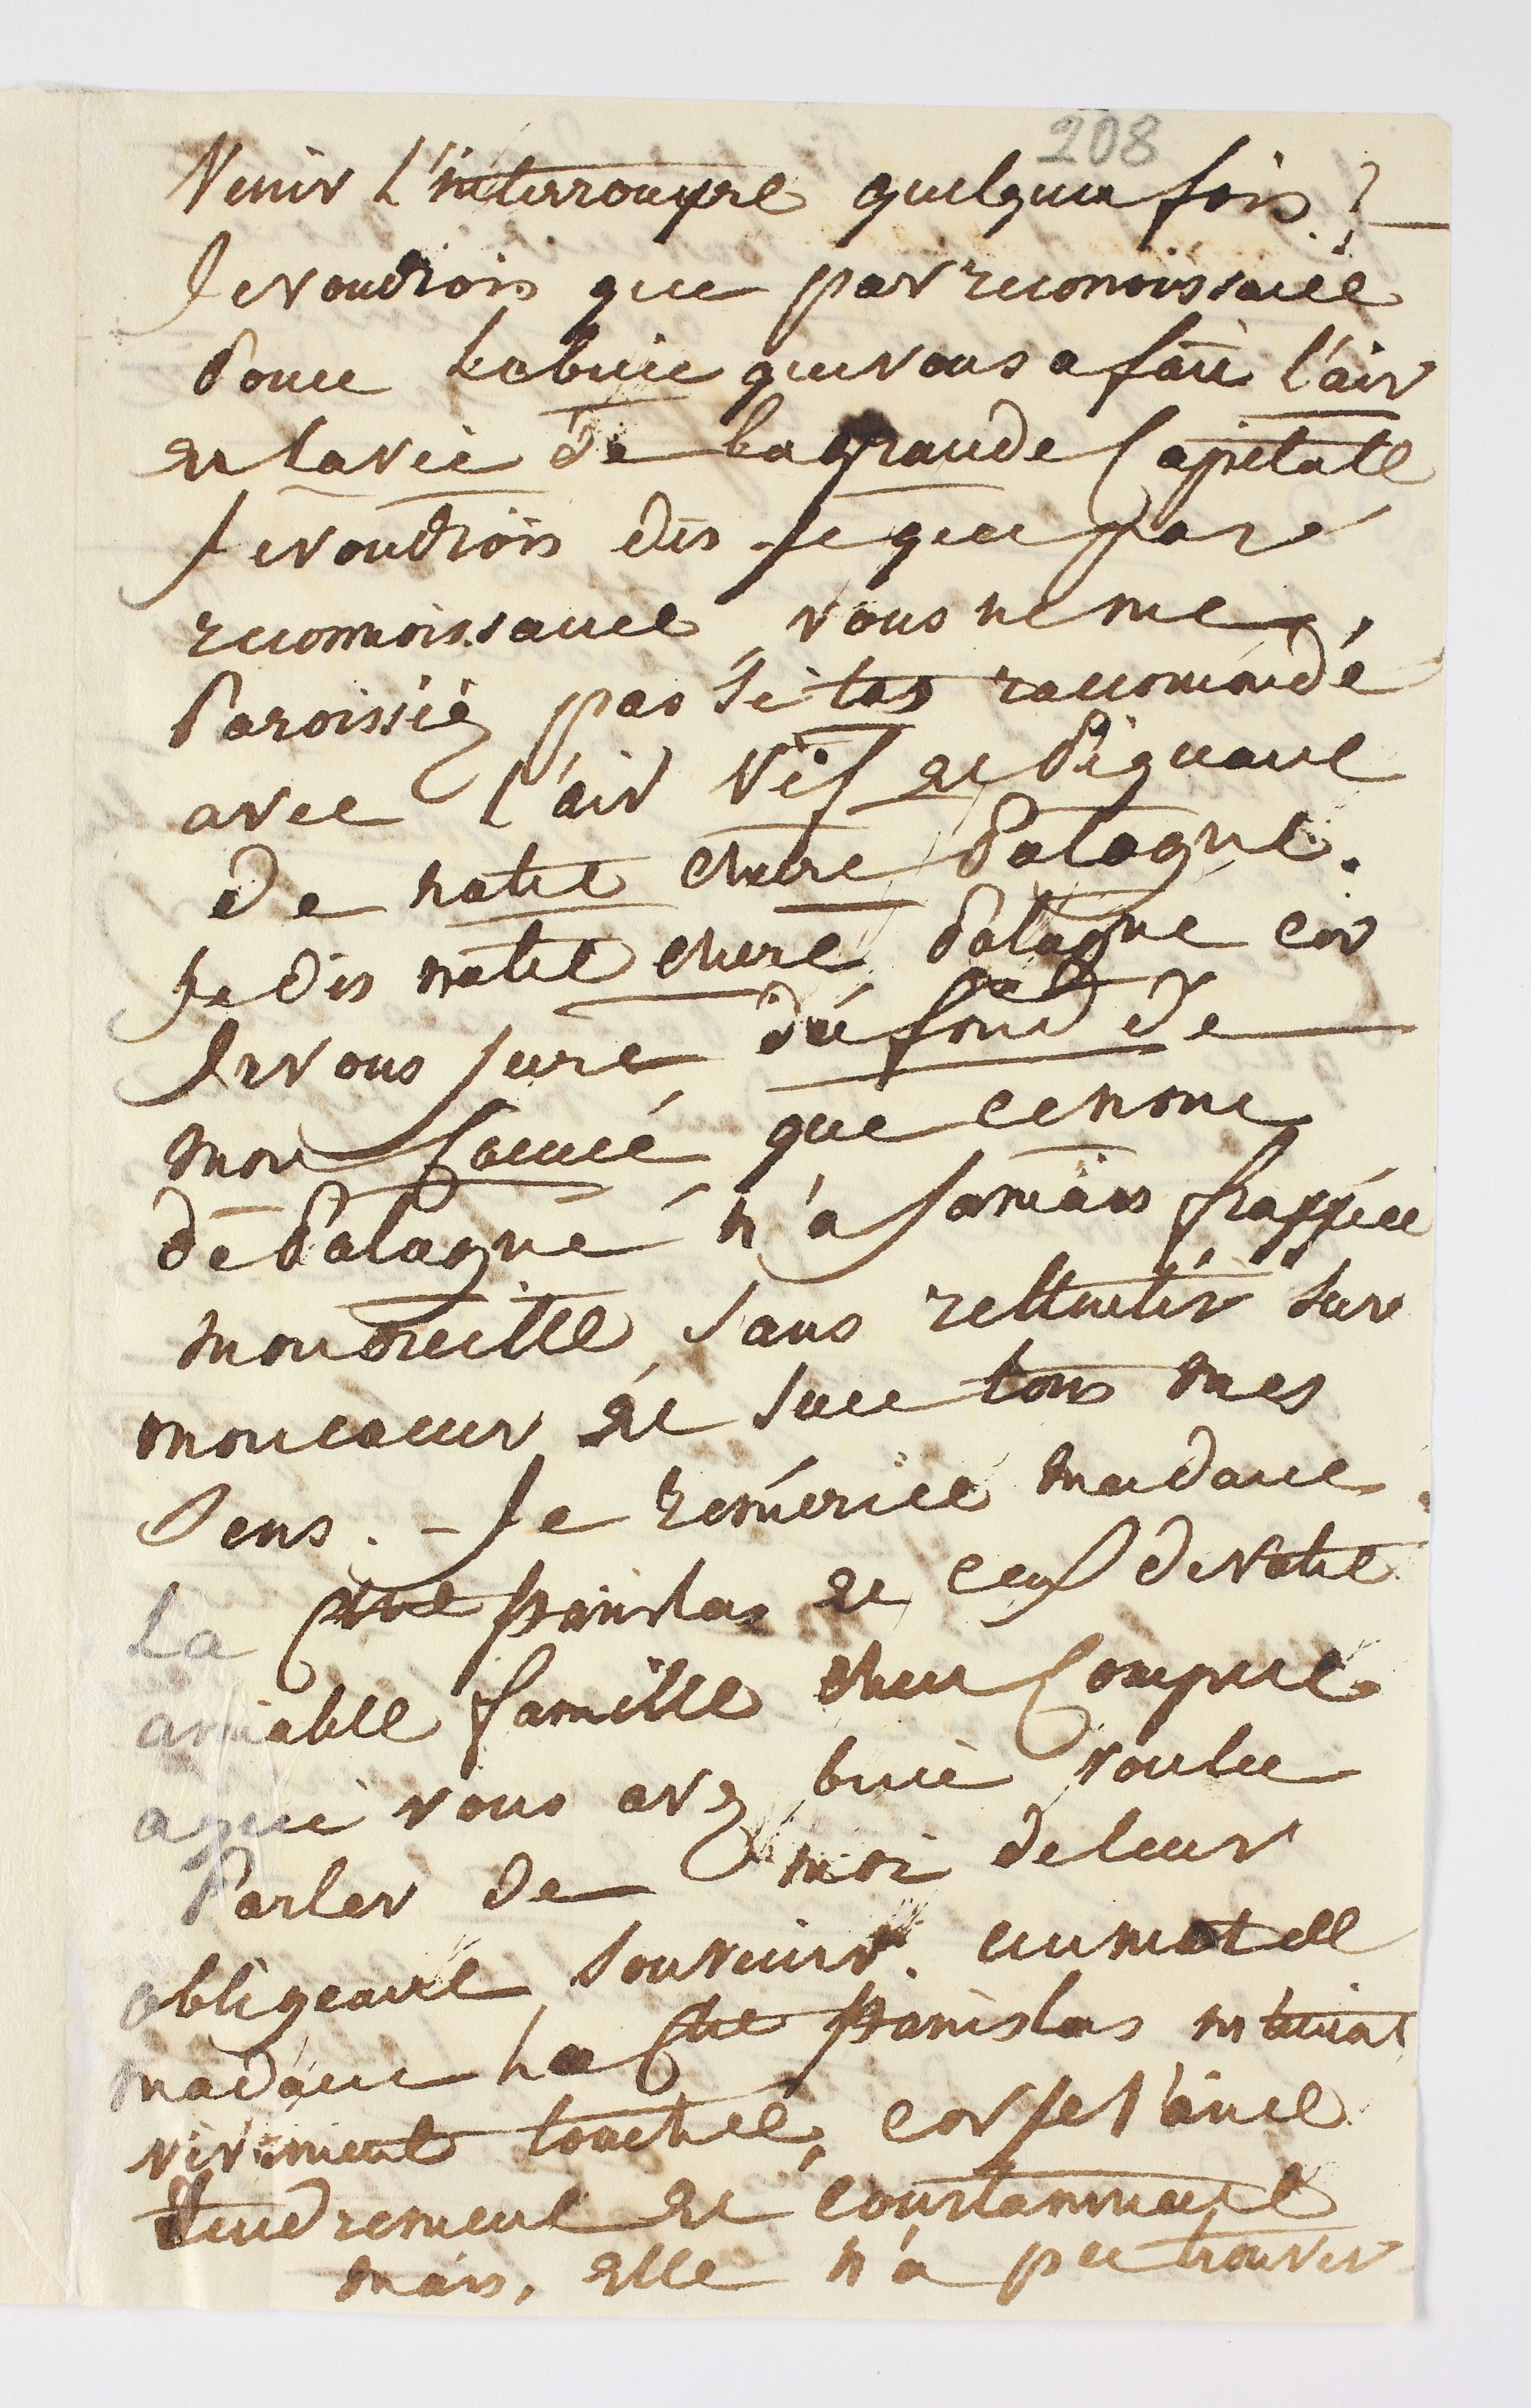 208
Venir l'interrompre quelque fois?
Je voudrois que par reconoissance
Pour le bien que vous a fait l'air
et la vie de la grande Capitale
Je voudrois dis-je que par
reconnoissance vous ne me
Paroissiez pas si tos raccomodé
avec l'air vif et Piquant
De notre chere Patagne.
Je dis notre chere Patagne car
Je vous jure du fond de
mon Coeur que ce nom
de Patagne n'a jamais frappée
mon oreille sans rettentir sur
mon coeur et sur tous mes
Sens. - Je remercie madame
La Ctte Stanislas et ceux de votre
aimable famille cher Compere
a qui vous avez bien voulu
Parler de moi de leur
obligeant souvenir. un mot de
madame La Ctte Stanislas m'auroit
vivement touchée, car je l'aime
tendrement et constamment
mais, elle n'a pu trouver